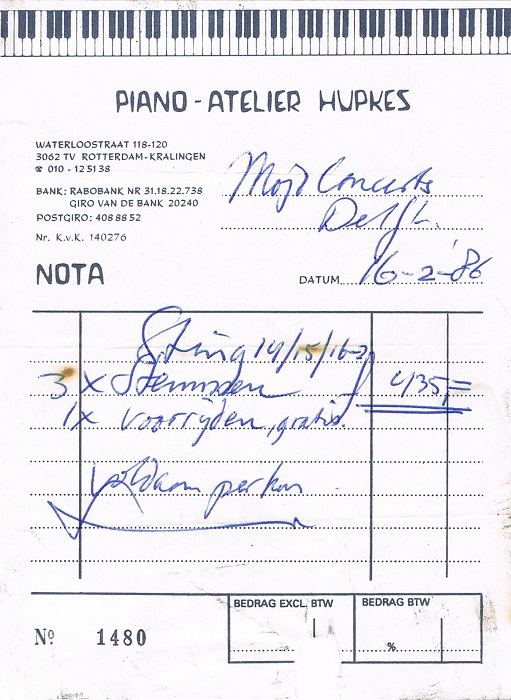 PIANO-ATELIER HUPKES
WATERLOOSTRAAT 118-120
3062 TV ROTTERDAM-KRALINGEN
☎ 010 - 12 51 38
BANK: RABOBANK NR 31.18.22.738
GIRO VAN DE BANK 20240
POSTGIRO: 408 88 52
Nr. K.v.K. 140276
Mojo Concerts
Delft.
NOTA
DATUM 16-2-'86
Sting 14/15/16-2
3 x Stemmen ƒ 435,=
1x voorrijden, gratis.
Voldaan per kas
BEDRAG EXCL. BTW
BEDRAG BTW
%
Nº 1480